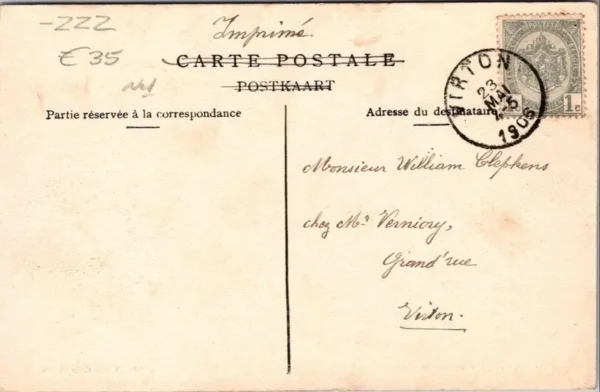 -ZZZ
Imprimé
€35
CARTE POSTALE
POSTKAART
Partie réservée à la correspondance
Adresse du destinataire
VIRTON
23
MAI
1906
1c
Monsieur William Clephens
chez Mr Verniory,
Grand'rue
Virton.